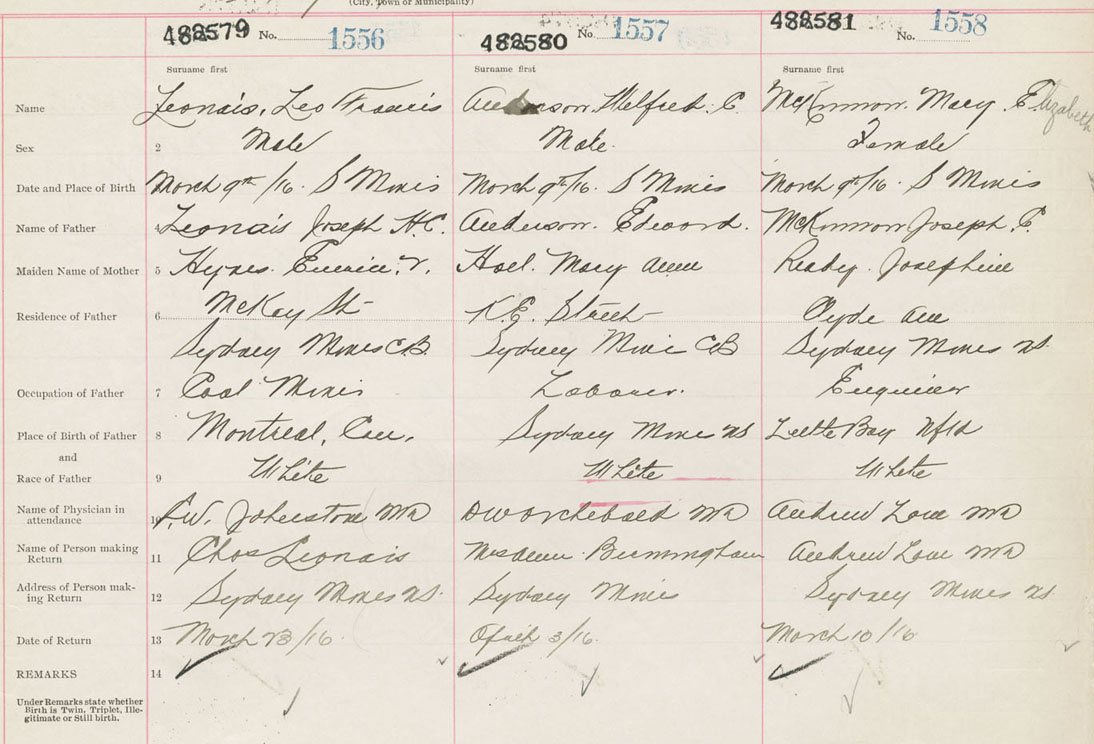 (City, Town or Municipality)
488579 No. 1556 488580 No. 1557 488581 No. 1558
Surname first Surname first Surname first
Name Leonais, Leo Francis Anderson. Wilfred. C. McKinnon. Mary. Elizabeth
Sex 2 Male Male. Female
Date and Place of Birth March 9th/16. S Mines March 9th/16. S Mines March 9th/16. S Mines
Name of Father 4 Leonais Joseph H.C. Anderson. Edward. McKinnon Joseph.
Maiden Name of Mother 5 Hynes. Mary Ann Josephine
Residence of Father 6 McKay St K.E. Street Clyde Ave
Sydney Mines C.B. Sydney Mine CB Sydney Mines NS.
Occupation of Father 7 Coal Miner Laborer. Engineer
Place of Birth of Father 8 Montreal, Can. Sydney Mines NS Little Bay Nfld
and
Race of Father 9 White White White
Name of Physician in
attendance 10 W. Johnstone MD DW Archibald MD Andrew Love MD
Name of Person making
Return 11 Chas Leonais Birmingham Andrew Love MD
Address of Person mak-
ing Return 12 Sydney Mines NS. Sydney Mines Sydney Mines NS
Date of Return 13 March 23/16. April 3/16. March 10/16
REMARKS 14
Under Remarks state whether
Birth is Twin, Triplet, Ille-
gitimate or Still birth.